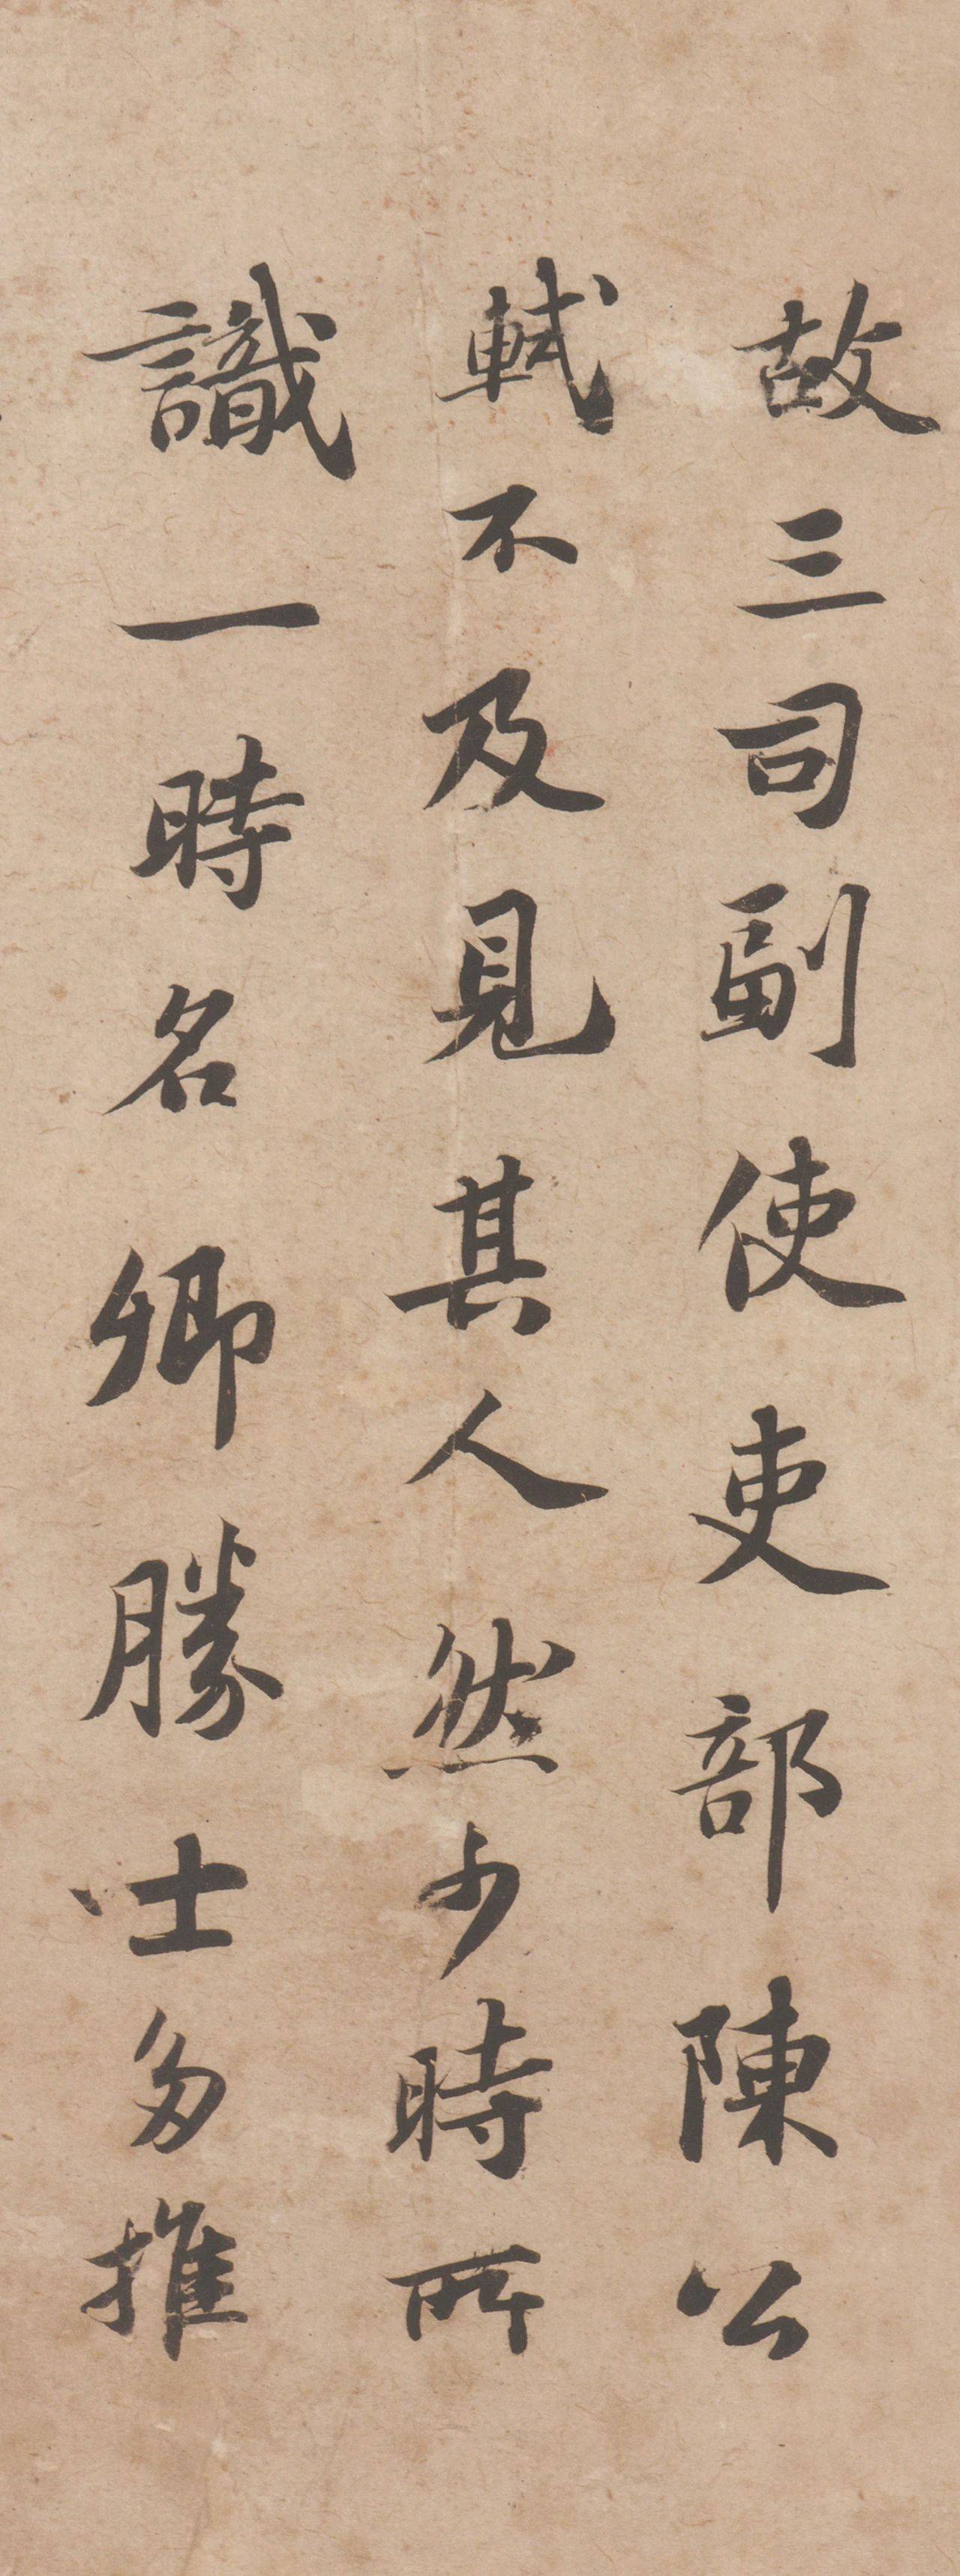 故三司副使吏部陳公
軾不及見其人然少時所
識一時名卿勝士多推